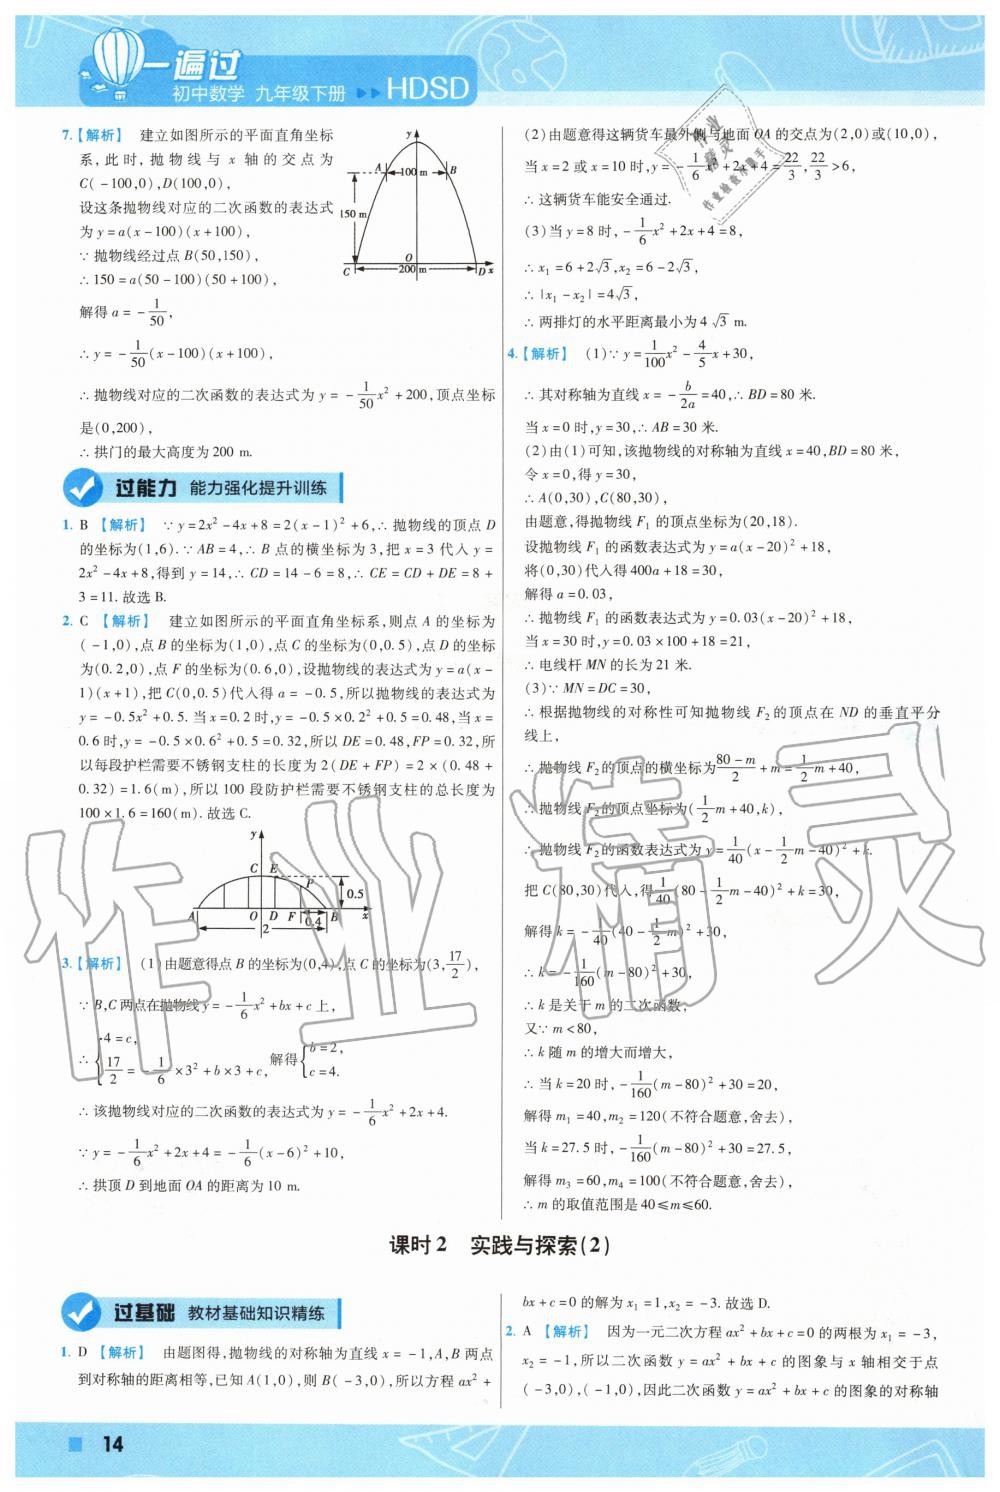 一遍过
初中数学 九年级下册 ▶▶ HDSD
7.【解析】 建立如图所示的平面直角坐标
系,此时,抛物线与 x 轴的交点为
C(-100,0),D(100,0),
设这条抛物线对应的二次函数的表达式
为 y=a(x-100)(x+100),
∵抛物线经过点 B(50,150),
∴150=a(50-100)(50+100),
解得 a=-1/50,
∴y=-1/50(x-100)(x+100),
∴抛物线对应的二次函数的表达式为 y=-1/50x²+200,顶点坐标
是(0,200),
∴拱门的最大高度为 200 m.
y
A 100 m B
150 m
O
C 200 m D x
过能力 能力强化提升训练
1. B 【解析】 ∵y=2x²-4x+8=2(x-1)²+6,∴抛物线的顶点 D
的坐标为(1,6).∵AB=4,∴B 点的横坐标为 3,把 x=3 代入 y=
2x²-4x+8,得到 y=14,∴CD=14-6=8,∴CE=CD+DE=8+
3=11.故选 B.
2. C 【解析】 建立如图所示的平面直角坐标系,则点 A 的坐标为
(-1,0),点 B 的坐标为(1,0),点 C 的坐标为(0,0.5),点 D 的坐标
为(0.2,0),点 F 的坐标为(0.6,0),设抛物线的表达式为 y=a(x-
1)(x+1),把 C(0,0.5)代入得 a=-0.5,所以抛物线的表达式为
y=-0.5x²+0.5.当 x=0.2 时,y=-0.5×0.2²+0.5=0.48,当 x=
0.6 时,y=-0.5×0.6²+0.5=0.32,所以 DE=0.48,FP=0.32,所
以每段护栏需要不锈钢支柱的长度为 2(DE+FP)=2×(0.48+
0.32)=1.6(m),所以 100 段防护栏需要不锈钢支柱的总长度为
100×1.6=160(m).故选 C.
y
C E P
0.5
A O D F 0.4 B x
2
3.【解析】 (1)由题意得点 B 的坐标为(0,4),点 C 的坐标为(3,17/2),
∵B,C 两点在抛物线 y=-1/6x²+bx+c 上,
∴{4=c, 17/2=-1/6×3²+b×3+c, 解得{b=2, c=4.
∴该抛物线对应的二次函数的表达式为 y=-1/6x²+2x+4.
∵y=-1/6x²+2x+4=-1/6(x-6)²+10,
∴拱顶 D 到地面 OA 的距离为 10 m.
(2)由题意得这辆货车最外侧与地面 OA 的交点为(2,0)或(10,0),
当 x=2 或 x=10 时,y=-1/6x²+2x+4=22/3,22/3>6,
∴这辆货车能安全通过.
(3)当 y=8 时,-1/6x²+2x+4=8,
∴x₁=6+2√3,x₂=6-2√3,
∴|x₁-x₂|=4√3,
∴两排灯的水平距离最小为 4√3 m.
4.【解析】 (1)∵y=1/100x²-4/5x+30,
∴其对称轴为直线 x=-b/2a=40,∴BD=80 米.
当 x=0 时,y=30,∴AB=30 米.
(2)由(1)可知,该抛物线的对称轴为直线 x=40,BD=80 米,
令 x=0,得 y=30,
∴A(0,30),C(80,30),
由题意,得抛物线 F₁ 的顶点坐标为(20,18).
设抛物线 F₁ 的函数表达式为 y=a(x-20)²+18,
将(0,30)代入得 400a+18=30,
解得 a=0.03,
∴抛物线 F₁ 的函数表达式为 y=0.03(x-20)²+18,
当 x=30 时,y=0.03×100+18=21,
∴电线杆 MN 的长为 21 米.
(3)∵MN=DC=30,
∴根据抛物线的对称性可知抛物线 F₂ 的顶点在 ND 的垂直平分
线上,
∴抛物线 F₂ 的顶点的横坐标为 (80-m)/2+m=1/2m+40,
∴抛物线 F₂ 的顶点坐标为(1/2m+40,k),
∴抛物线 F₂ 的函数表达式为 y=1/40(x-1/2m-40)²+k.
把 C(80,30)代入,得 1/40(80-1/2m-40)²+k=30,
解得 k=-1/40(40-1/2m)²+30,
∴k=-1/160(m-80)²+30,
∴k 是关于 m 的二次函数,
又∵m<80,
∴k 随 m 的增大而增大,
∴当 k=20 时,-1/160(m-80)²+30=20,
解得 m₁=40,m₂=120(不符合题意,舍去),
当 k=27.5 时,-1/160(m-80)²+30=27.5,
解得 m₃=60,m₄=100(不符合题意,舍去),
∴m 的取值范围是 40≤m≤60.
课时2 实践与探索(2)
过基础 教材基础知识精练
1. D 【解析】 由题图得,抛物线的对称轴为直线 x=-1,A,B 两点
到对称轴的距离相等,已知 A(1,0),则 B(-3,0),所以方程 ax²+
bx+c=0 的解为 x₁=1,x₂=-3.故选 D.
2. A 【解析】 因为一元二次方程 ax²+bx+c=0 的两根为 x₁=-3,
x₂=-1,所以二次函数 y=ax²+bx+c 的图象与 x 轴相交于点
(-3,0),(-1,0),因此二次函数 y=ax²+bx+c 的图象的对称轴
14
作业精灵
作业精灵
作业检查小助手